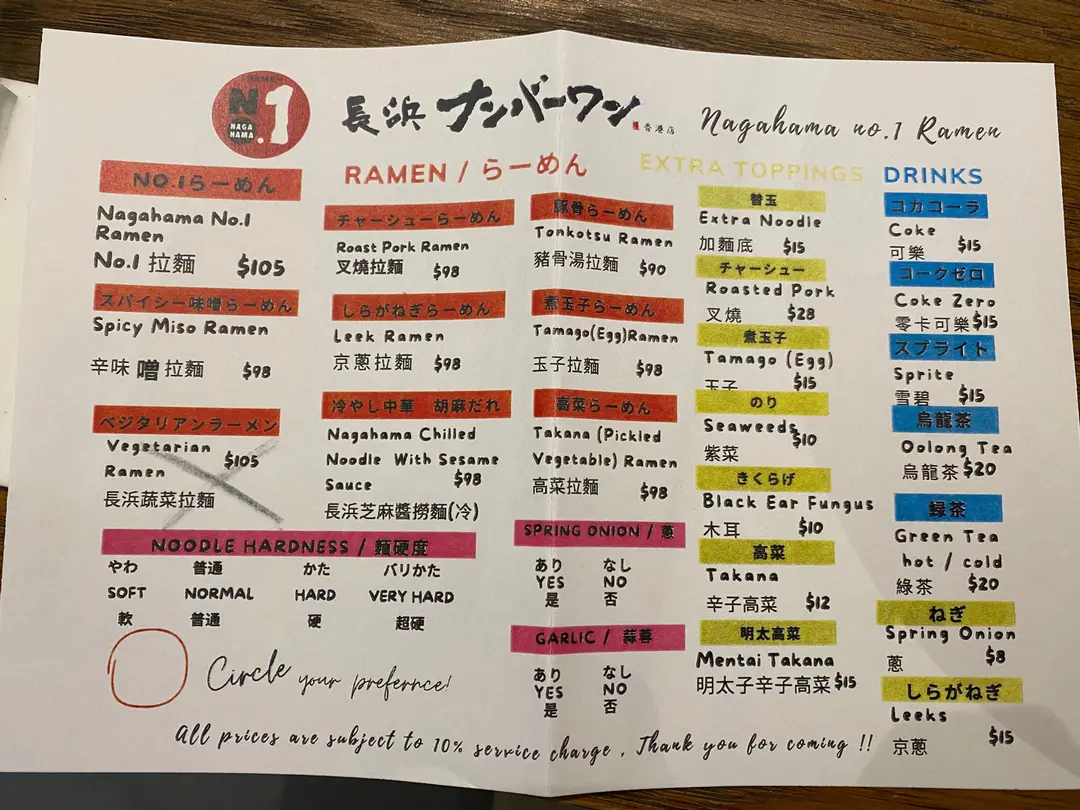 RAMEN
No.1
NAGA
HAMA
長浜 ナンバーワン
香港店
Nagahama no.1 Ramen
NO.1らーめん
Nagahama No.1
Ramen
No.1 拉麵 $105
スパイシー味噌らーめん
Spicy Miso Ramen
辛味噌拉麵 $98
ベジタリアンラーメン
Vegetarian
Ramen $105
長浜蔬菜拉麵
RAMEN / らーめん
チャーシューらーめん
Roast Pork Ramen
叉燒拉麵 $98
しらがねぎらーめん
Leek Ramen
京蔥拉麵 $98
冷やし中華 胡麻だれ
Nagahama Chilled
Noodle With Sesame
Sauce $98
長浜芝麻醬撈麵(冷)
豚骨らーめん
Tonkotsu Ramen
豬骨湯拉麵 $90
煮玉子らーめん
Tamago(Egg)Ramen
玉子拉麵 $98
高菜らーめん
Takana (Pickled
Vegetable) Ramen
高菜拉麵 $98
EXTRA TOPPINGS
替玉
Extra Noodle
加麵底 $15
チャーシュー
Roasted Pork
叉燒 $28
煮玉子
Tamago (Egg)
玉子 $15
のり
Seaweeds
紫菜 $10
きくらげ
Black Ear Fungus
木耳 $10
高菜
Takana
辛子高菜 $12
明太高菜
Mentai Takana
明太子辛子高菜 $15
DRINKS
コカコーラ
Coke
可樂 $15
コークゼロ
Coke Zero
零卡可樂 $15
スプライト
Sprite
雪碧 $15
烏龍茶
Oolong Tea
烏龍茶 $20
緑茶
Green Tea
hot / cold
綠茶 $20
ねぎ
Spring Onion
蔥 $8
しらがねぎ
Leeks
京蔥 $15
NOODLE HARDNESS / 麵硬度
やわ 普通 かた バリかた
SOFT NORMAL HARD VERY HARD
軟 普通 硬 超硬
SPRING ONION / 蔥
あり なし
YES NO
是 否
GARLIC / 蒜蓉
あり なし
YES NO
是 否
Circle your prefernce!
All prices are subject to 10% service charge , Thank you for coming !!